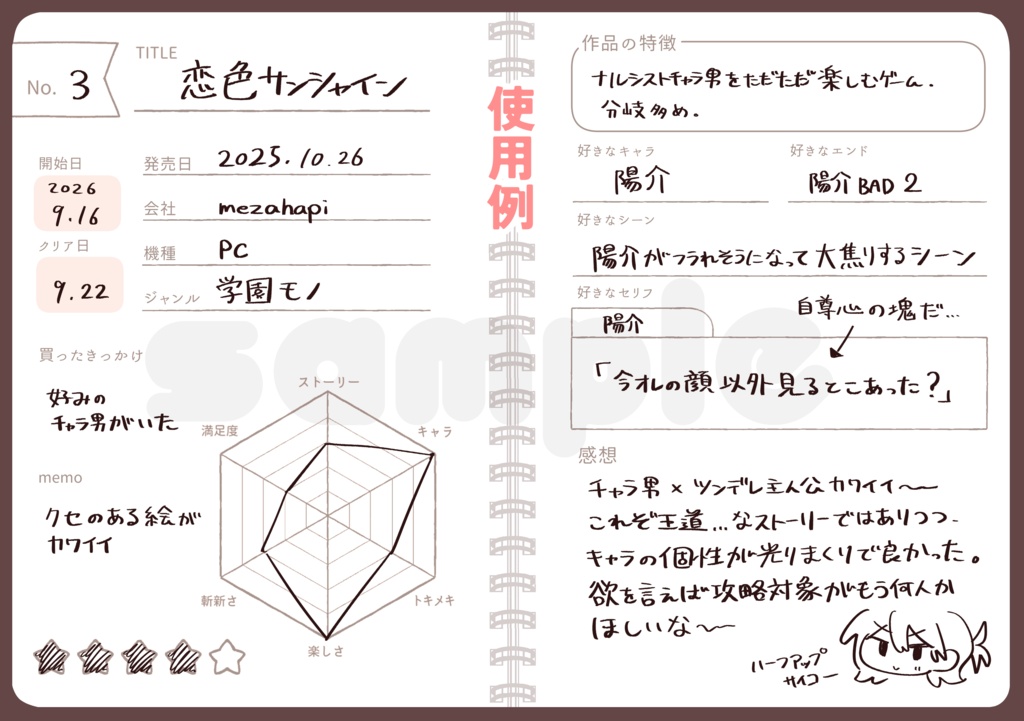 No. 3
TITLE
恋色サンシャイン
開始日
2026
9.16
クリア日
9.22
発売日 2025.10.26
会社 mezahapi
機種 PC
ジャンル 学園モノ
買ったきっかけ
好みの
チャラ男がいた
memo
クセのある絵が
カワイイ
ストーリー
キャラ
トキメキ
楽しさ
斬新さ
満足度
使用例
作品の特徴
ナルシストチャラ男をただただ楽しむゲーム.
分岐多め.
好きなキャラ
陽介
好きなエンド
陽介 BAD 2
好きなシーン
陽介がフラれそうになって大焦りするシーン
好きなセリフ
陽介
自尊心の塊だ…
「今オレの顔以外見るとこあった?」
感想
チャラ男×ツンデレ主人公カワイイ〜〜
これぞ王道…なストーリーではありつつ.
キャラの個性が光りまくりで良かった。
欲を言えば攻略対象がもう何人か
ほしいな〜〜
ハーフアップ
サイコー
sample